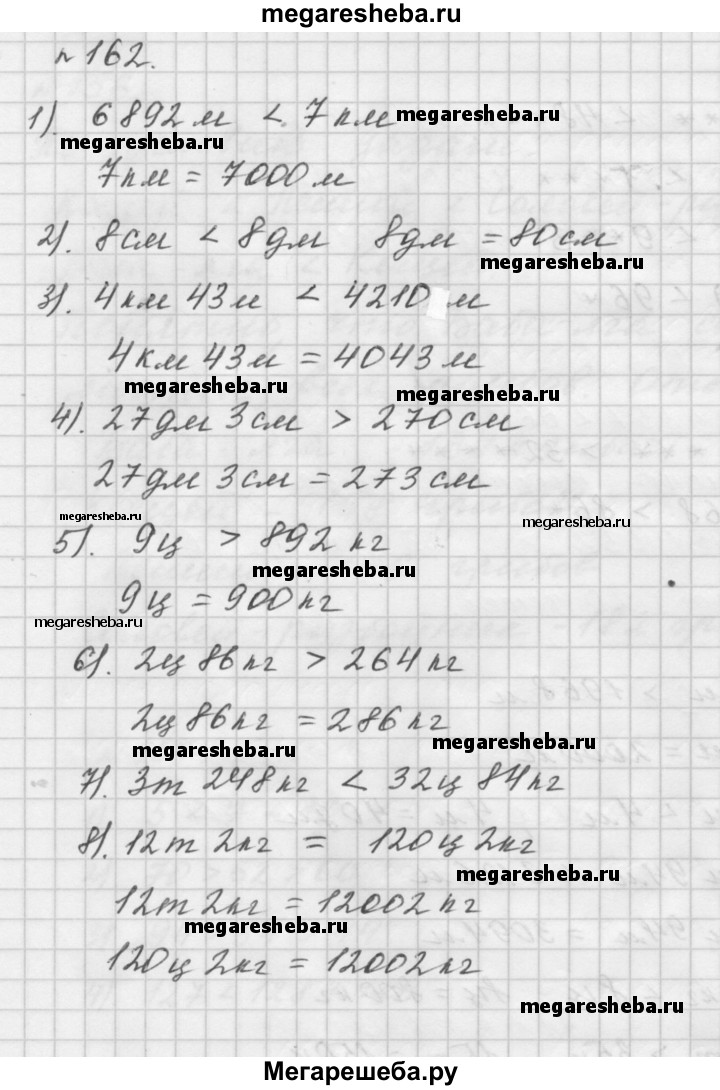 megaresheba.ru
№ 162.
1). 6892 м < 7 км megaresheba.ru
megaresheba.ru
7 км = 7000 м
2). 8 см < 8 дм 8 дм = 80 см
megaresheba.ru
3). 4 км 43 м < 4210 м
4 км 43 м = 4043 м
megaresheba.ru megaresheba.ru
4). 27 дм 3 см > 270 см
27 дм 3 см = 273 см
megaresheba.ru megaresheba.ru
5). 9 ц > 892 кг
megaresheba.ru
9 ц = 900 кг
megaresheba.ru
6). 2 ц 86 кг > 264 кг
2 ц 86 кг = 286 кг
megaresheba.ru megaresheba.ru
7). 3 т 248 кг < 32 ц 84 кг
8). 12 т 2 кг = 120 ц 2 кг
megaresheba.ru
12 т 2 кг = 12002 кг
megaresheba.ru
120 ц 2 кг = 12002 кг
megaresheba.ru
Мегарешеба.ру